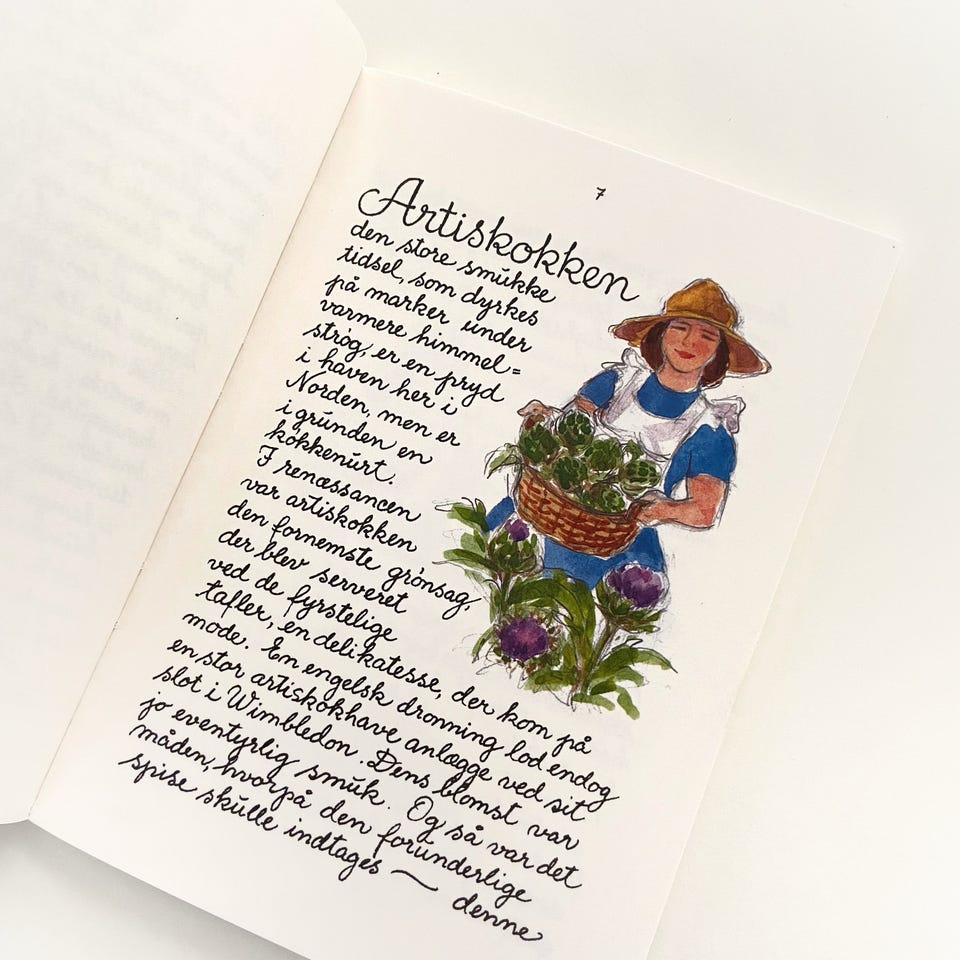 7
Artiskokken
den store smukke
tidsel, som dyrkes
på marker under
varmere himmel=
strøg, er en pryd
i haven her i
Norden, men er
i grunden en
køkkenurt.
I renæssancen
var artiskokken
den fornemste grønsag,
der blev serveret
ved de fyrstelige
tafler, en delikatesse, der kom på
mode. En engelsk dronning lod endog
en stor artiskokhave anlægge ved sit
slot i Wimbledon. Dens blomst var
jo eventyrlig smuk. Og så var det
måden, hvorpå den forunderlige
spise skulle indtages — denne